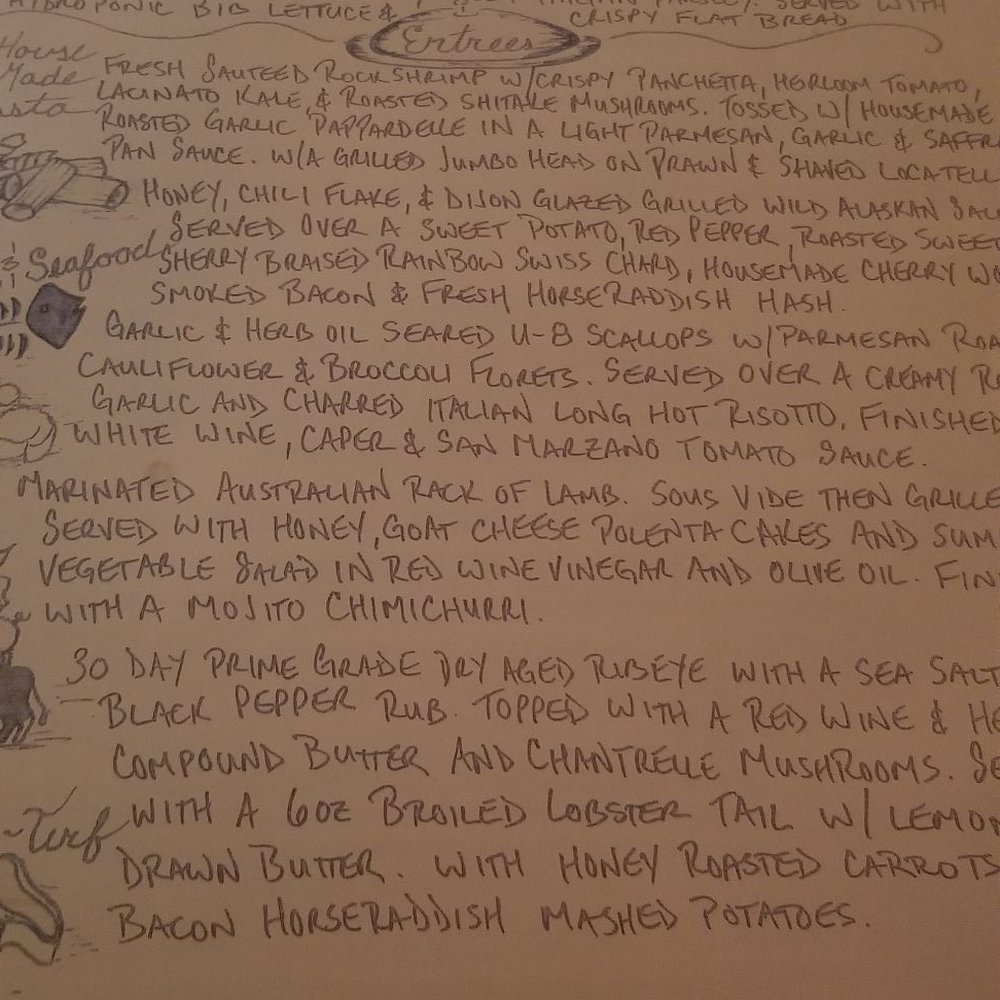 HYDROPONIC BIB LETTUCE & ITALIAN PARSLEY. SERVED WITH
CRISPY FLAT BREAD
Entrees
House
Made
FRESH SAUTEED ROCKSHRIMP W/CRISPY PANCHETTA, HEIRLOOM TOMATO,
LACINATO KALE, & ROASTED SHITAKE MUSHROOMS. TOSSED W/ HOUSEMADE
ROASTED GARLIC PAPPARDELLE IN A LIGHT PARMESAN, GARLIC & SAFFR
PAN SAUCE. W/A GRILLED JUMBO HEAD ON PRAWN & SHAVED LOCATELL
HONEY, CHILI FLAKE, & DIJON GLAZED GRILLED WILD ALASKAN SAL
SERVED OVER A SWEET POTATO, RED PEPPER, ROASTED SWEET
Seafood
SHERRY BRAISED RAINBOW SWISS CHARD, HOUSEMADE CHERRY WO
SMOKED BACON & FRESH HORSERADDISH HASH.
GARLIC & HERB OIL SEARED U-8 SCALLOPS W/PARMESAN ROA
CAULIFLOWER & BROCCOLI FLORETS. SERVED OVER A CREAMY R
GARLIC AND CHARRED ITALIAN LONG HOT RISOTTO. FINISHED
WHITE WINE, CAPER & SAN MARZANO TOMATO SAUCE.
MARINATED AUSTRALIAN RACK OF LAMB. SOUS VIDE THEN GRILLE
SERVED WITH HONEY, GOAT CHEESE POLENTA CAKES AND SUM
VEGETABLE SALAD IN RED WINE VINEGAR AND OLIVE OIL. FIN
WITH A MOJITO CHIMICHURRI.
30 DAY PRIME GRADE DRY AGED RIBEYE WITH A SEA SALT
BLACK PEPPER RUB. TOPPED WITH A RED WINE & HE
COMPOUND BUTTER AND CHANTRELLE MUSHROOMS. SE
~Turf
WITH A 6OZ BROILED LOBSTER TAIL W/ LEMON
DRAWN BUTTER. WITH HONEY ROASTED CARROTS
BACON HORSERADDISH MASHED POTATOES.